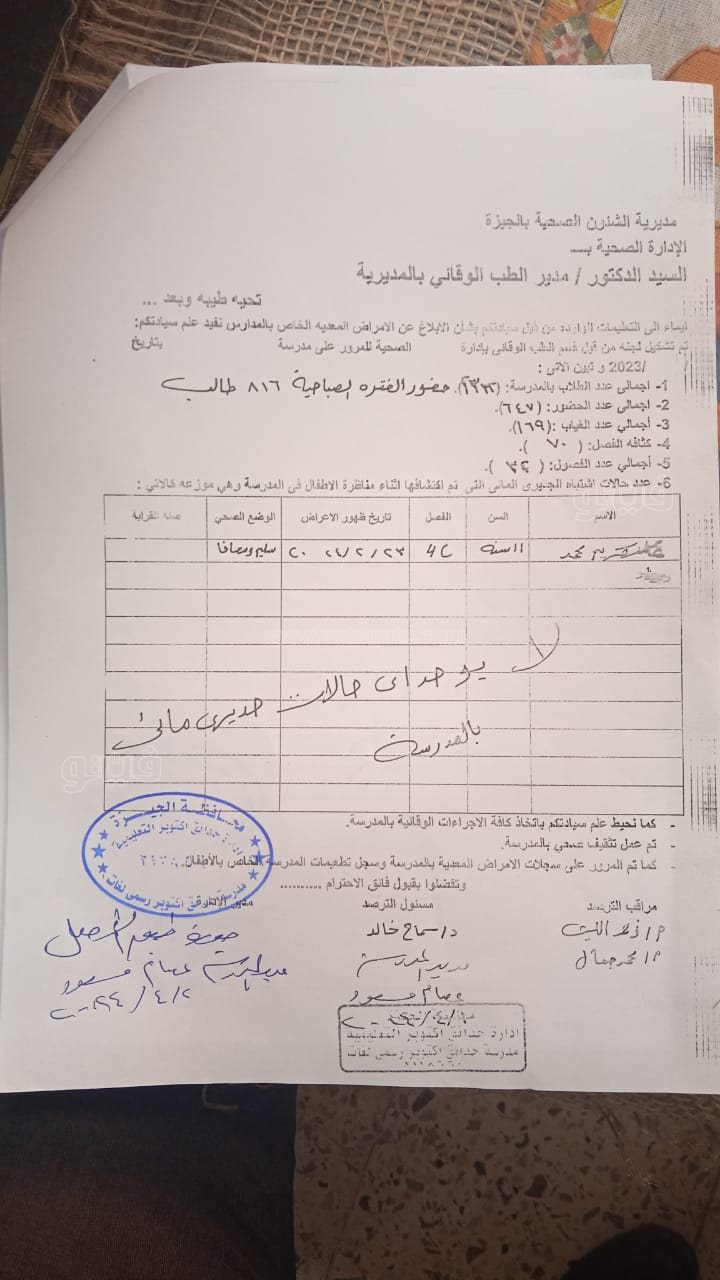 مديرية الشئون الصحية بالجيزة
الإدارة الصحية بـــ
السيد الدكتور / مدير الطب الوقائي بالمديرية
تحيه طيبه وبعد ...
ايماء الى التعليمات الوارده من قبل سيادتكم بشأن الابلاغ عن الامراض المعديه الخاص بالمدارس نفيد علم سيادتكم:
تم تشكيل لجنه من قبل قسم الطب الوقائى بإدارة الصحية للمرور على مدرسة بتاريخ
/2023 و تبين الاتى :
1- اجمالى عدد الطلاب بالمدرسة: (١٣٢٢). حضور الفتره الصباحية ٨١٦ طالب
2- اجمالى عدد الحضور: (٦٤٧).
3- أجمالي عدد الغياب :(١٦٩).
4- كثافه الفصل: ( ٧٠ ).
5- أجمالي عدد الفصول: ( ٣٤ ).
6- عدد حالات اشتباه الجديرى المائى التى تم اكتشافها اثناء مناظرة الاطفال فى المدرسة وهي موزعه كالاتي :
الاسم السن الفصل تاريخ ظهور الاعراض الوضع الصحي صله القرابة
كريم محمد ١١ سنه 4C ٢٠٢٤/٢/٢٣ سليم ومعافا
لا يوجد اى حالات جديرى مائى
بالمدرسة
فايتو
www.vetogate.com
فايتو
- كما نحيط علم سيادتكم باتخاذ كافة الاجراءات الوقائية بالمدرسة.
- تم عمل تثقيف صحى بالمدرسة.
- كما تم المرور على سجلات الامراض المعدية بالمدرسة وسجل تطعيمات المدرسة الخاص بالأطفال
وتفضلوا بقبول فائق الاحترام ..........
محافظة الجيزة
إدارة حدائق اكتوبر التعليمية
مدرسة حدائق اكتوبر رسمى لغات
مراقب الترصد مسئول الترصد مدير الادارة
د/ سماح خالد
م/ محمد جمال
صورة طبق الأصل
مدير المدرسة
عصام مسعود
٢٠٢٤/٤/٢
مدير المدرسة
عصام مسعود
ادارة حدائق اكتوبر التعليمية
مدرسة حدائق اكتوبر رسمى لغات